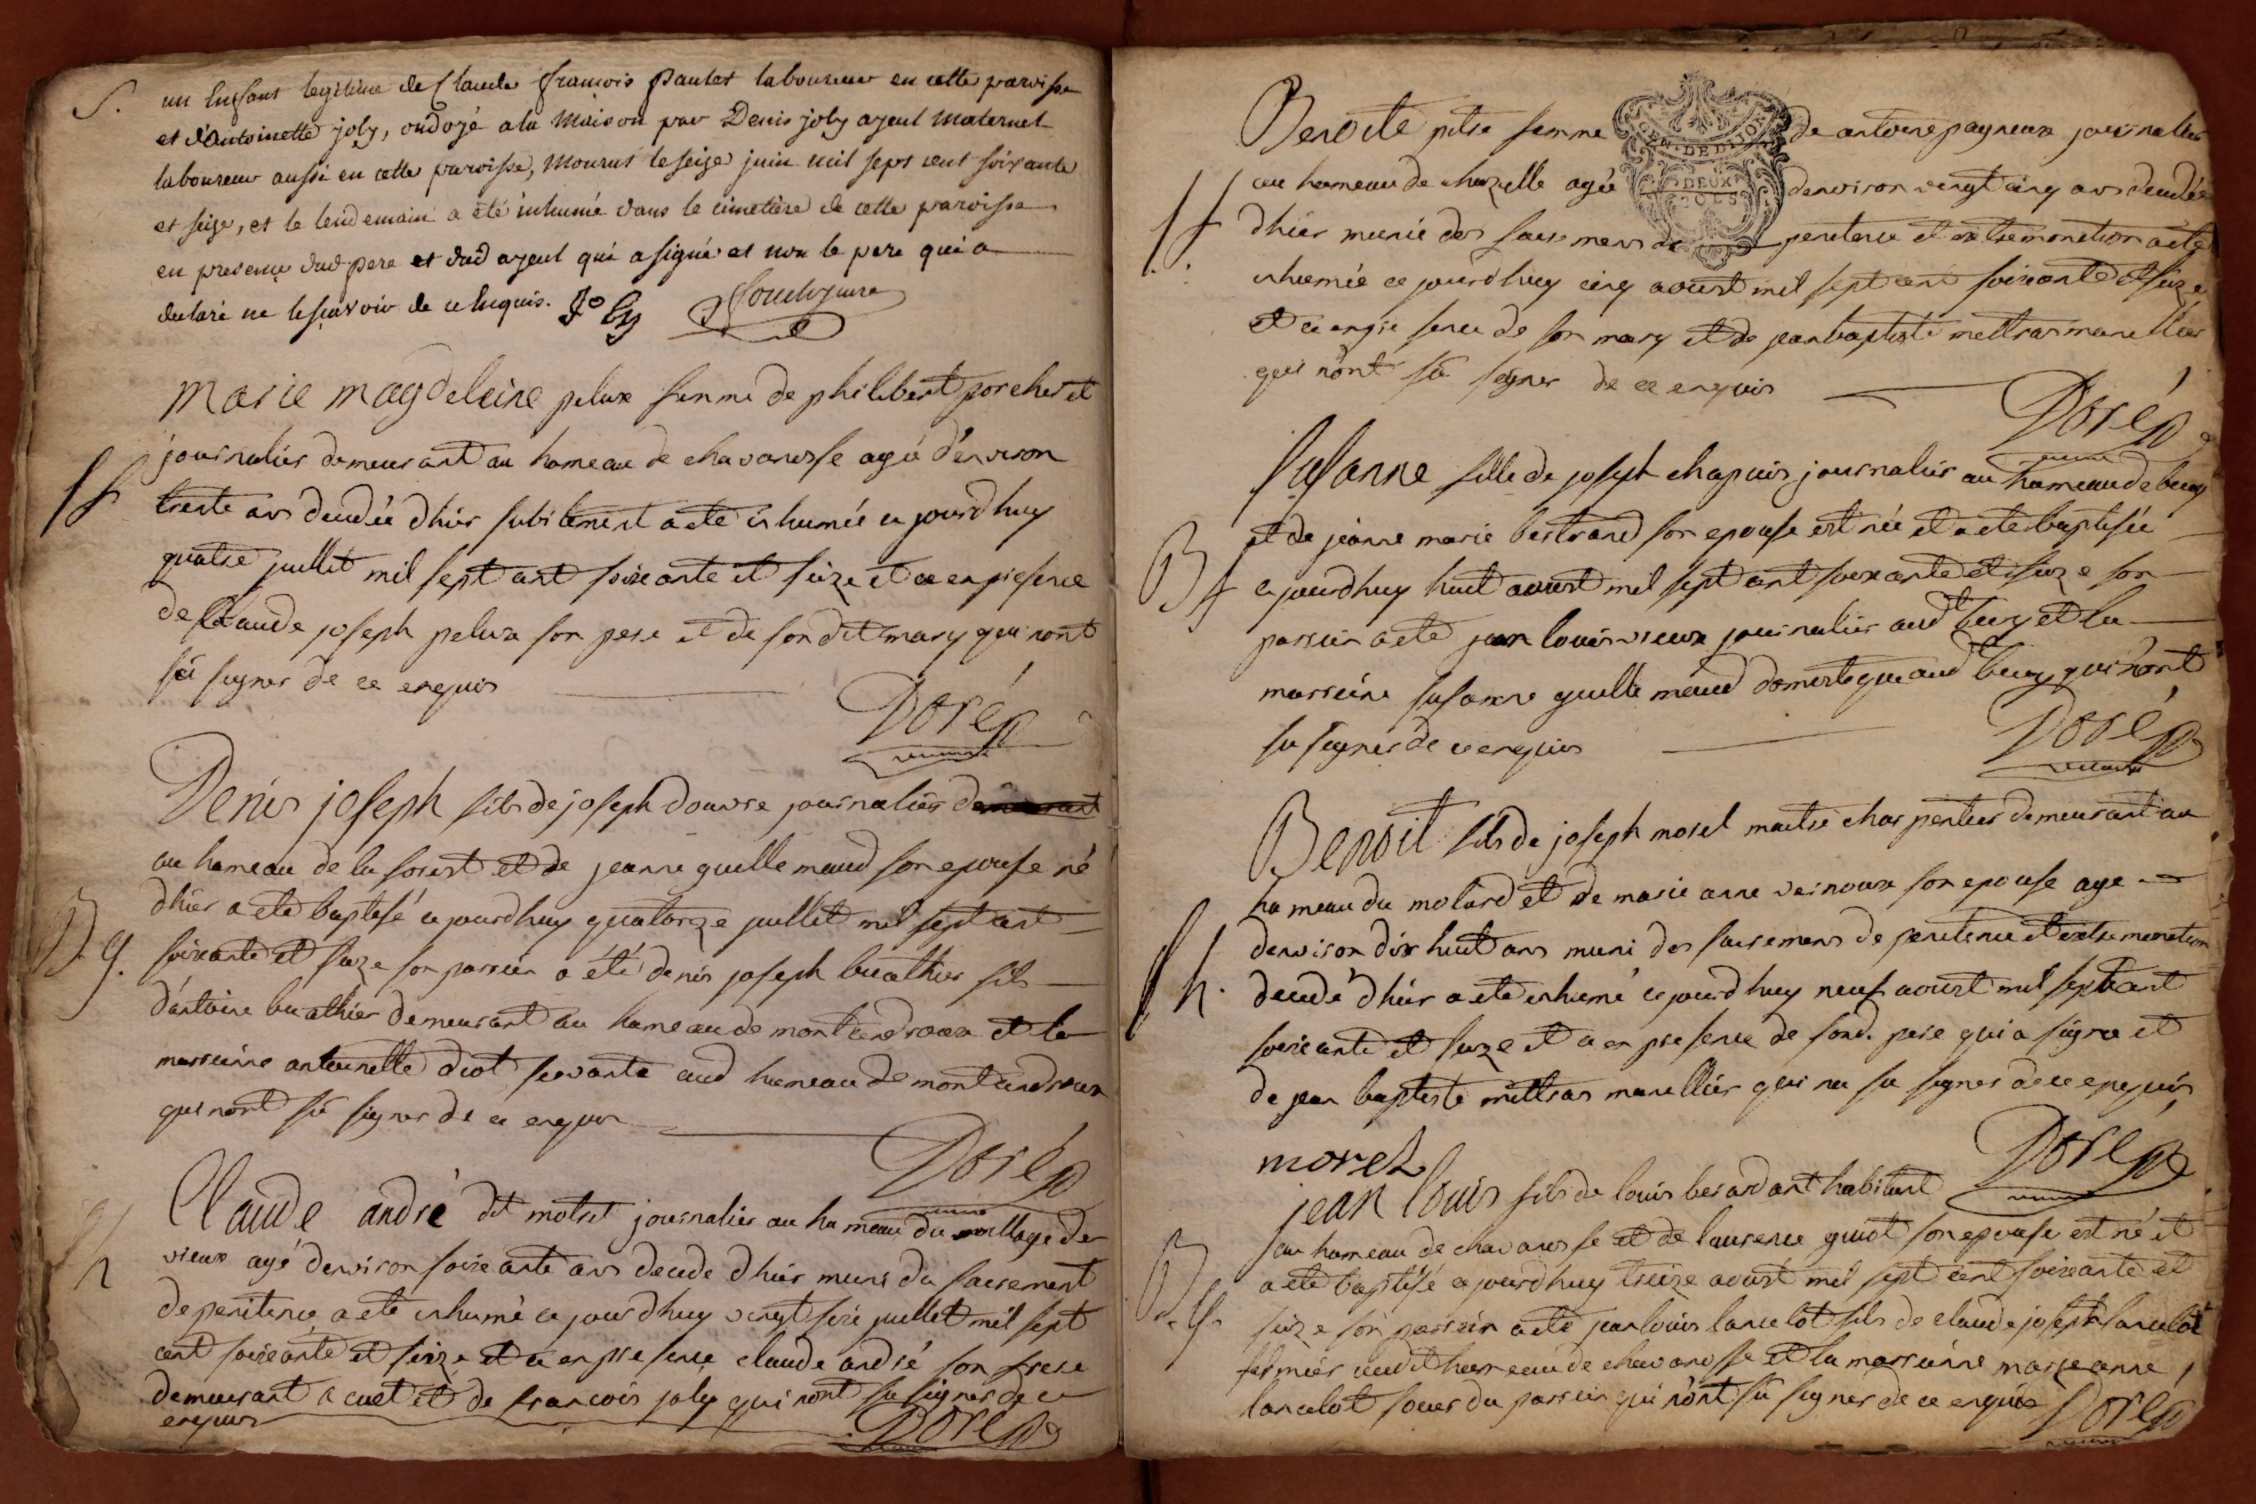 S.
un Enfant legitime de Claude françois Pautet laboureur en cette paroisse
et d'Antoinette joly, ondoyé a la Maison par Denis joly ayeul Maternel
laboureur aussi en cette paroisse, Mourut le seize juin mil sept cent soixante
et seize, et le lendemain a été inhumé dans le cimetière de cette paroisse
en presence dud pere et dud ayeul qui a signé et non le pere qui a
declaré ne le sçavoir de ce Enquis. Joly
Marie magdeleine pelux femme de philibert porcheret
journalier demeurant au hameau de chavanosse agé d'environ
trente ans decedée dhier subitement a ete inhumée ce jourdhuy
quatre juillet mil sept cent soixante et seize et ce en presence
de Claude joseph pelux son pere et de son dit mary qui nont
sû signer de ce enquis
Doré
Denis joseph fils de joseph douvre journalier
au hameau de la forest et de jeanne guillemaud son epouse né
dhier a ete baptisé ce jourdhuy quatorze juillet mil sept cent
B g.
soixante et seize son parrein a été denis joseph buathier fils
d'antoine buathier demeurant au hameau de montandroux et la
marreinne antoinette diot servante aud hameau de montandroux
qui nont sû signer de ce enquis
Doré
Claude andré dit motret journalier au hameau du village des
vieux agé denviron soixante ans decede dhier muni du sacrement
de penitence a ete inhumé ce jourdhuy vingt juillet mil sept
cent soixante et seize et ce en presence claude andré son frere
demeurant a cuet et de francois joly qui nont su signer de ce
enquis
Doré
GEN. DE DIJON
DEUX
SOLS
Benoite pitre femme de antoine pagneux journalier
au hameau de chazelle agée denviron vingt cinq ans decedée
dhier munie des sacremens de penitence et extremonction a ete
inhumée ce jourdhuy cinq aoust mil sept cent soixante et seize
et ce en presence de son mary et de jean baptiste mettras marellier
qui n'ont sû signer de ce enquis
Doré
Susanne fille de joseph chapuis journalier au hameau de beuy
et de jeanne marie bertrand son epouse est née et a ete baptisée
B f
ce jourdhuy huit aoust mil sept cent soixante et seize son
parrein a ete jean louis vieux journalier aud beuy et la
marreine susanne guillemaud domestique aud beuy qui n'ont
su signer de ce enquis
Doré
Benoit fils de joseph morel maitre charpentier demeurant au
hameau du molard et de marie anne vernoux son epouse age
denviron dix huit ans muni des sacremens de penitence et extremonction
S h.
decedé dhier a ete inhumé ce jourdhuy neuf aoust mil sept cent
soixante et seize et ce en presence de sond. pere qui a signé et
de jean baptiste mettras marellier qui na su signer de ce enquis
morel
Doré
jean louis fils de louis berardant habitant
au hameau de chavanosse et de laurence guiot son epouse est né et
a ete baptisé ce jourdhuy treize aoust mil sept cent soixante et
B. g.
seize son parrein a ete jean louis lancelot fils de claude joseph lancelot
fermier audit hameau de chavanosse et la marreinne marie anne
lancelot soeur du parrein qui n'ont sû signer de ce enquis
Doré